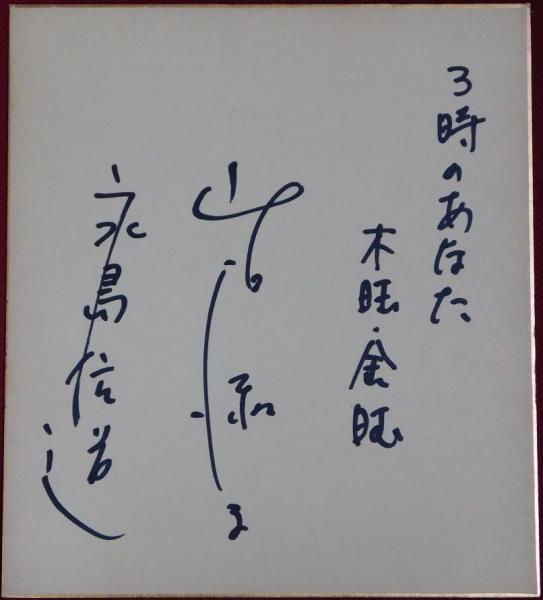 3時のあなた
木曜・金曜
山口淑子
永島信道